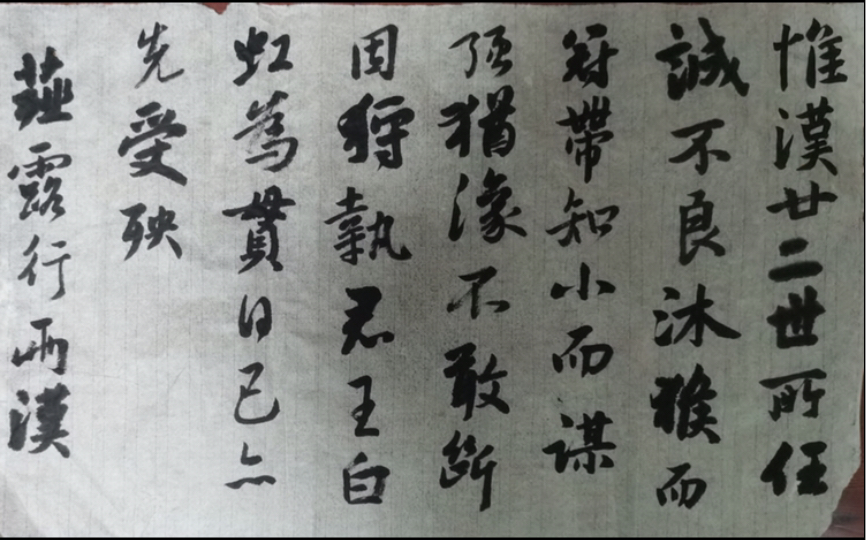 惟漢廿二世所任
誠不良沐猴而
冠帶知小而謀
强猶豫不敢斷
因狩執君王白
虹為貫日己亦
先受殃
薤露行兩漢